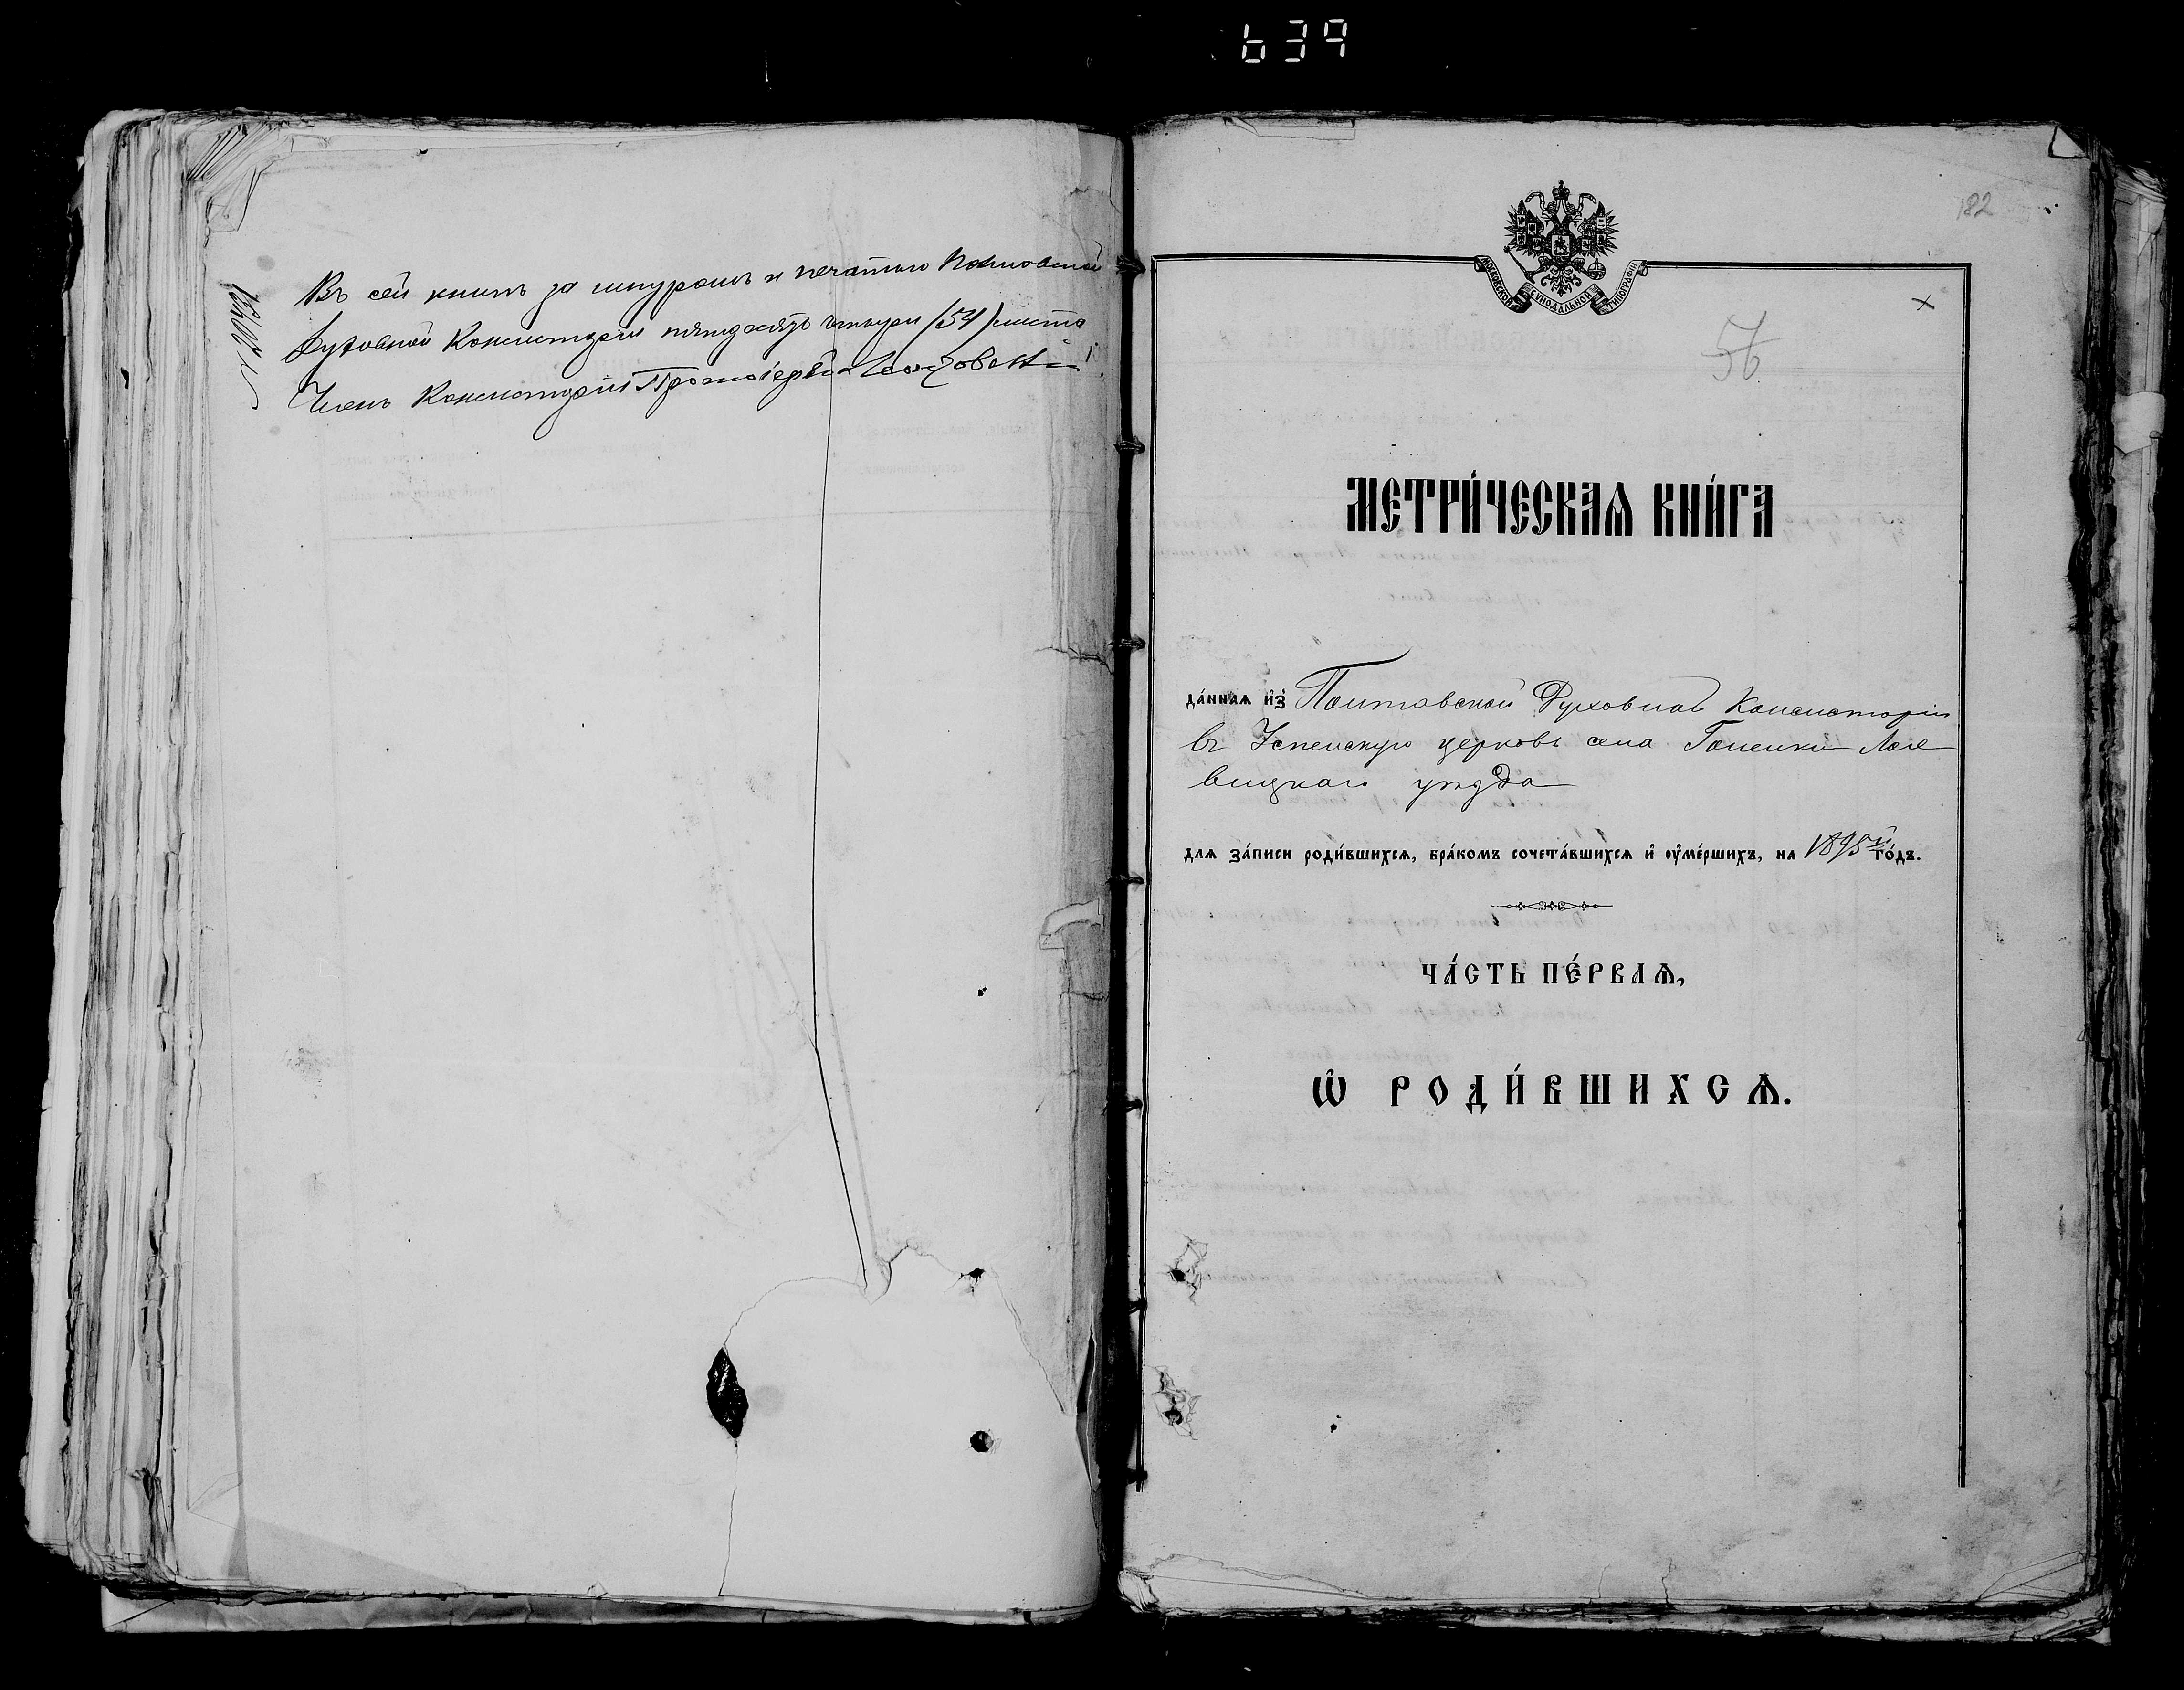 639
Въ сей книгѣ за шнуромъ и печатью Полтавской
Духовной Консисторіи пятьдесятъ четыри (54) листа
Членъ Консисторіи Протоіерей
182
МОСКОВСКОЙ СѴНОДАЛЬНОЙ ТИПОГРАФІИ
×
56
МЕТРИ́ЧЕСКАѦ КНИ́ГА
да́ннаѧ и҆з̾ Полтавской Духовной Консисторіи
въ Успенскую церковь села Гапенки Лох
вицкаго уѣзда
для за́писи роди́вшихсѧ, бра́комъ сочета́вшихсѧ и҆ ᲂу҆ме́ршихъ, на 1895й го́дъ.
ЧА́СТЬ ПЕ́РВАѦ,
Ѡ҆ РОДИ́ВШИХСѦ.